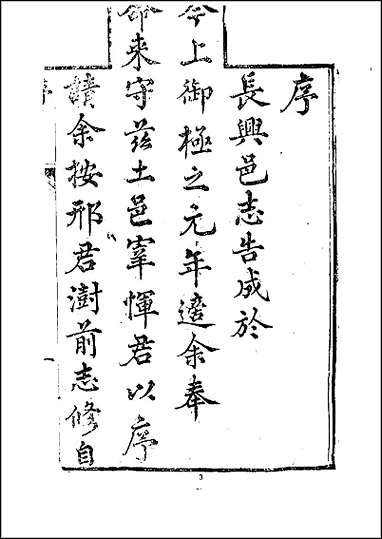 序
長興邑志告成於
今上御極之元年適余奉
命来守茲土邑宰惲君以序
請余按邢君澍前志修自
3